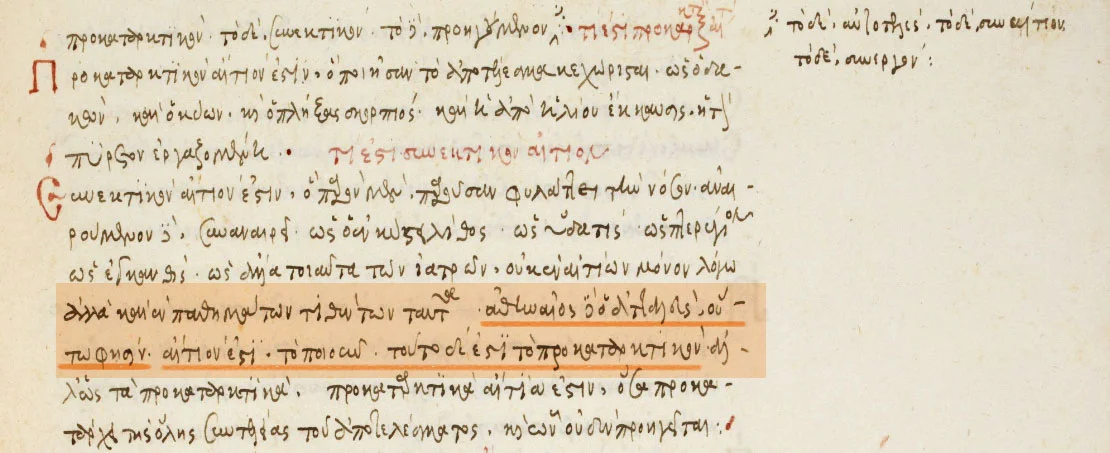 προκαταρκτικὸν· τὸ δὲ, συνεκτικὸν· τὸ δὲ, προηγούμενον· τί ἐστι προκαταρκτι
Π
ροκαταρκτικὸν αἴτιόν ἐστιν, ὃ ποιῆσαν τὸ ἀποτέλεσμα κεχώρισται· ὡς ὁ δα-
κὼν, κύων· κὴ ὁ πλήξας σκορπιός· καὶ ἡ ἀπὸ ἡλίου ἔκκαυσις, ἡ τὸν
πυρετὸν ἐργαζομένη. τί ἐστι συνεκτικὸν αἴτιον
Συνεκτικὸν αἴτιόν ἐστιν, ὃ παρὸν μὲν, παροῦσαν φυλάττει τὴν νόσον· ἀναι-
ρούμενον δὲ, συναναιρεῖ· ὡς ὁ ἐν κύστει λίθος· ὡς ὑδατὶς· ὡς πτερύγιον
ὡς ἐγκανθὶς· ὡς ἄλλα τοιαῦτα τῶν ἰατρῶν, οὐκ ἐν αἰτίων μόνον λόγω
ἀλλὰ καὶ ἐν παθημάτων τιθέντων ταῦτα· ἀθηναῖος δὲ ὁ ἀτταλεὺς, οὕ-
τω φησὶν· αἴτιόν ἐστι, τὸ ποιοῦν· τοῦτο δέ ἐστι τὸ προκαταρκτικὸν· ἀλ-
λως τὰ προκαταρκτικά, προκαταρκτικὰ αἴτιά ἐστιν, ὅσα προκα-
τάρχει τῆς ὅλης συντελείας τοῦ ἀποτελέσματος, ὧν οὐδὲν προηγεῖται:
τὸ δὲ, αὐτοτελὲς, τὸ δὲ, συναίτιον
τὸ δὲ, συνεργόν: